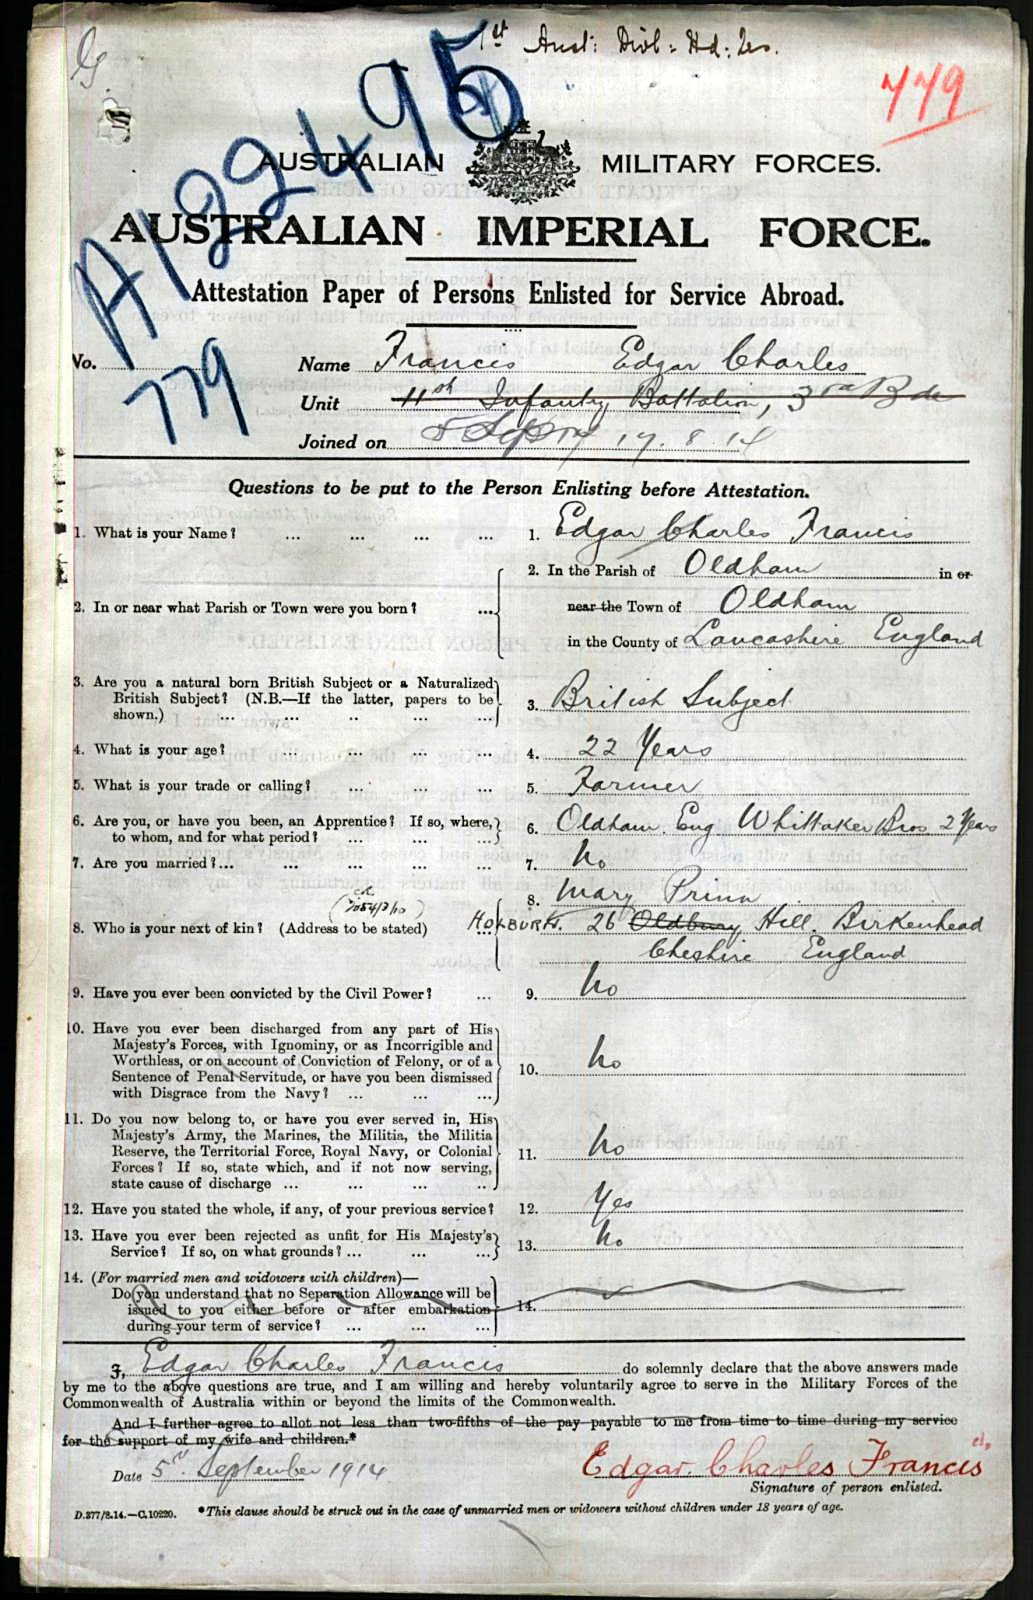 1st Aust: Divl: Hd: Qs.
779
A122495
AUSTRALIAN MILITARY FORCES.
AUSTRALIAN IMPERIAL FORCE.
Attestation Paper of Persons Enlisted for Service Abroad.
779
No. Name Francis Edgar Charles
Unit 11th Infantry Battalion, 3rd Bde
Joined on 5 Sep 14 17.8.14
Questions to be put to the Person Enlisting before Attestation.
1. What is your Name? ... ... ... ... 1. Edgar Charles Francis
2. In or near what Parish or Town were you born? ... 2. In the Parish of Oldham in or
near the Town of Oldham
in the County of Lancashire England
3. Are you a natural born British Subject or a Naturalized
British Subject? (N.B.—If the latter, papers to be
shown.) ... ... .. ... ... 3. British Subject
4. What is your age? ... ... ... ... 4. 22 Years
5. What is your trade or calling? ... ... ... 5. Farmer
6. Are you, or have you been, an Apprentice? If so, where,
to whom, and for what period? ... ... ... 6. Oldham. Eng Whittaker Bros 2 Years
7. Are you married?... ... ... ... ... 7. No
8. Who is your next of kin? (Address to be stated) ... 8. Mary Prinn
HOLBURK. 26 Oldbury Hill. Birkenhead
Cheshire England
9. Have you ever been convicted by the Civil Power? ... 9. No
10. Have you ever been discharged from any part of His
Majesty's Forces, with Ignominy, or as Incorrigible and
Worthless, or on account of Conviction of Felony, or of a
Sentence of Penal Servitude, or have you been dismissed
with Disgrace from the Navy? ... ... ... 10. No
11. Do you now belong to, or have you ever served in, His
Majesty's Army, the Marines, the Militia, the Militia
Reserve, the Territorial Force, Royal Navy, or Colonial
Forces? If so, state which, and if not now serving,
state cause of discharge ... ... ... .. 11. No
12. Have you stated the whole, if any, of your previous service? 12. Yes
13. Have you ever been rejected as unfit for His Majesty's
Service? If so, on what grounds? ... ... ... 13. No
14. (For married men and widowers with children)—
Do you understand that no Separation Allowance will be
issued to you either before or after embarkation
during your term of service? ... ... ... 14.
I, Edgar Charles Francis do solemnly declare that the above answers made
by me to the above questions are true, and I am willing and hereby voluntarily agree to serve in the Military Forces of the
Commonwealth of Australia within or beyond the limits of the Commonwealth.
And I further agree to allot not less than two-fifths of the pay payable to me from time to time during my service
for the support of my wife and children.*
Date 5th September 1914 Edgar. Charles Francis
Signature of person enlisted.
D.377/8.14.—C.10220. *This clause should be struck out in the case of unmarried men or widowers without children under 18 years of age.